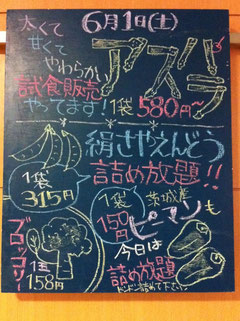 6月1日(土)
太くて
甘くて
やわらかい
アスパラ
試食販売
やってます!1袋580円~
絹さやえんどう
詰め放題!!
1袋
315円
1袋
150円
茨城産
ピーマンも
今日は
詰め放題
ドンドン詰めて下さい。
ブロッコリー
1玉
158円